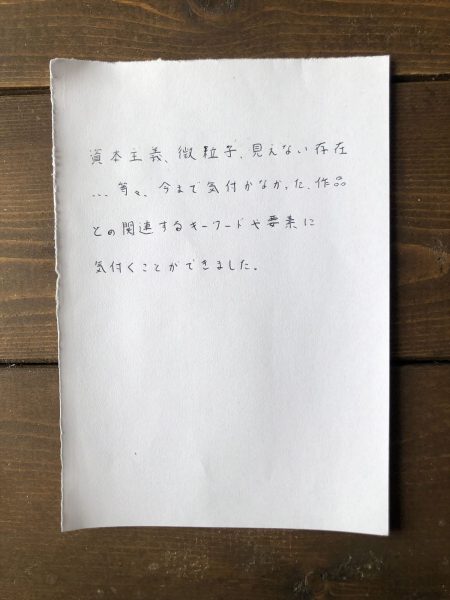 資本主義、微粒子、見えない存在
... 等々、今まで気付かなかった、作品
との関連するキーワードや要素に
気付くことができました。